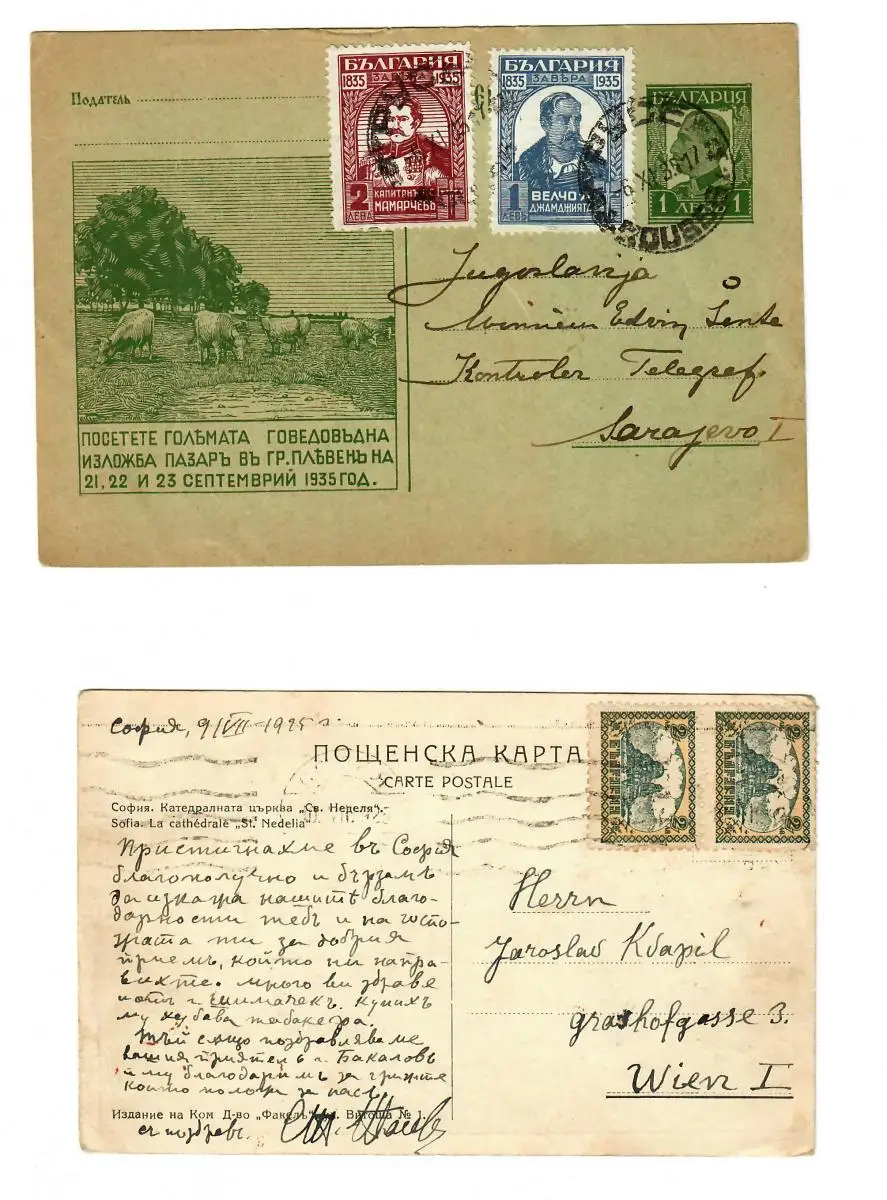 Податель
БЪЛГАРИЯ
1835 ЗАВѢРА 1935
2 ЛЕВА
КАПИТАНЪ МАМАРЧЕВЪ
БЪЛГАРИЯ
1835 ЗАВѢРА 1935
1 ЛЕВЪ
ВЕЛЧО А. ДЖАМДЖИЯТА
БЪЛГАРИЯ
1 ЛЕВЪ 1
ROUSSE
Jugoslavija
Edvin
Kontroler Telegraf
Sarajevo I
ПОСЕТЕТЕ ГОЛѢМАТА ГОВЕДОВЪДНА
ИЗЛОЖБА ПАЗАРЪ ВЪ ГР. ПЛѢВЕНЪ НА
21, 22 И 23 СЕПТЕМВРИЙ 1935 ГОД.
София, 9/VII - 1925 г.
ПОЩЕНСКА КАРТА
CARTE POSTALE
2 БЪЛГАРИЯ 2
2 БЪЛГАРИЯ 2
София. Катедралната църква „Св. Неделя“.
Sofia. La cathédrale „St. Nedelia“
Пристигнахме въ София
благополучно и бързамъ
да изкажа нашитѣ благо-
дарности тебъ и на госпо-
жата ти за добрия
приемъ, който ни напра-
вихте. Много ви здраве
отъ г. Шимачекъ. Купихъ
му хубава табакера.
Тъй също поздравяваме
вашия приятель г. Бакаловъ
и му благодаримъ за грижите
които положи за насъ.
Издание на Ком Д-во „Факелъ“ ул. Витоша № 1.
съ поздравъ
Herrn
Jaroslav Kvapil
grashofgasse 3.
Wien I